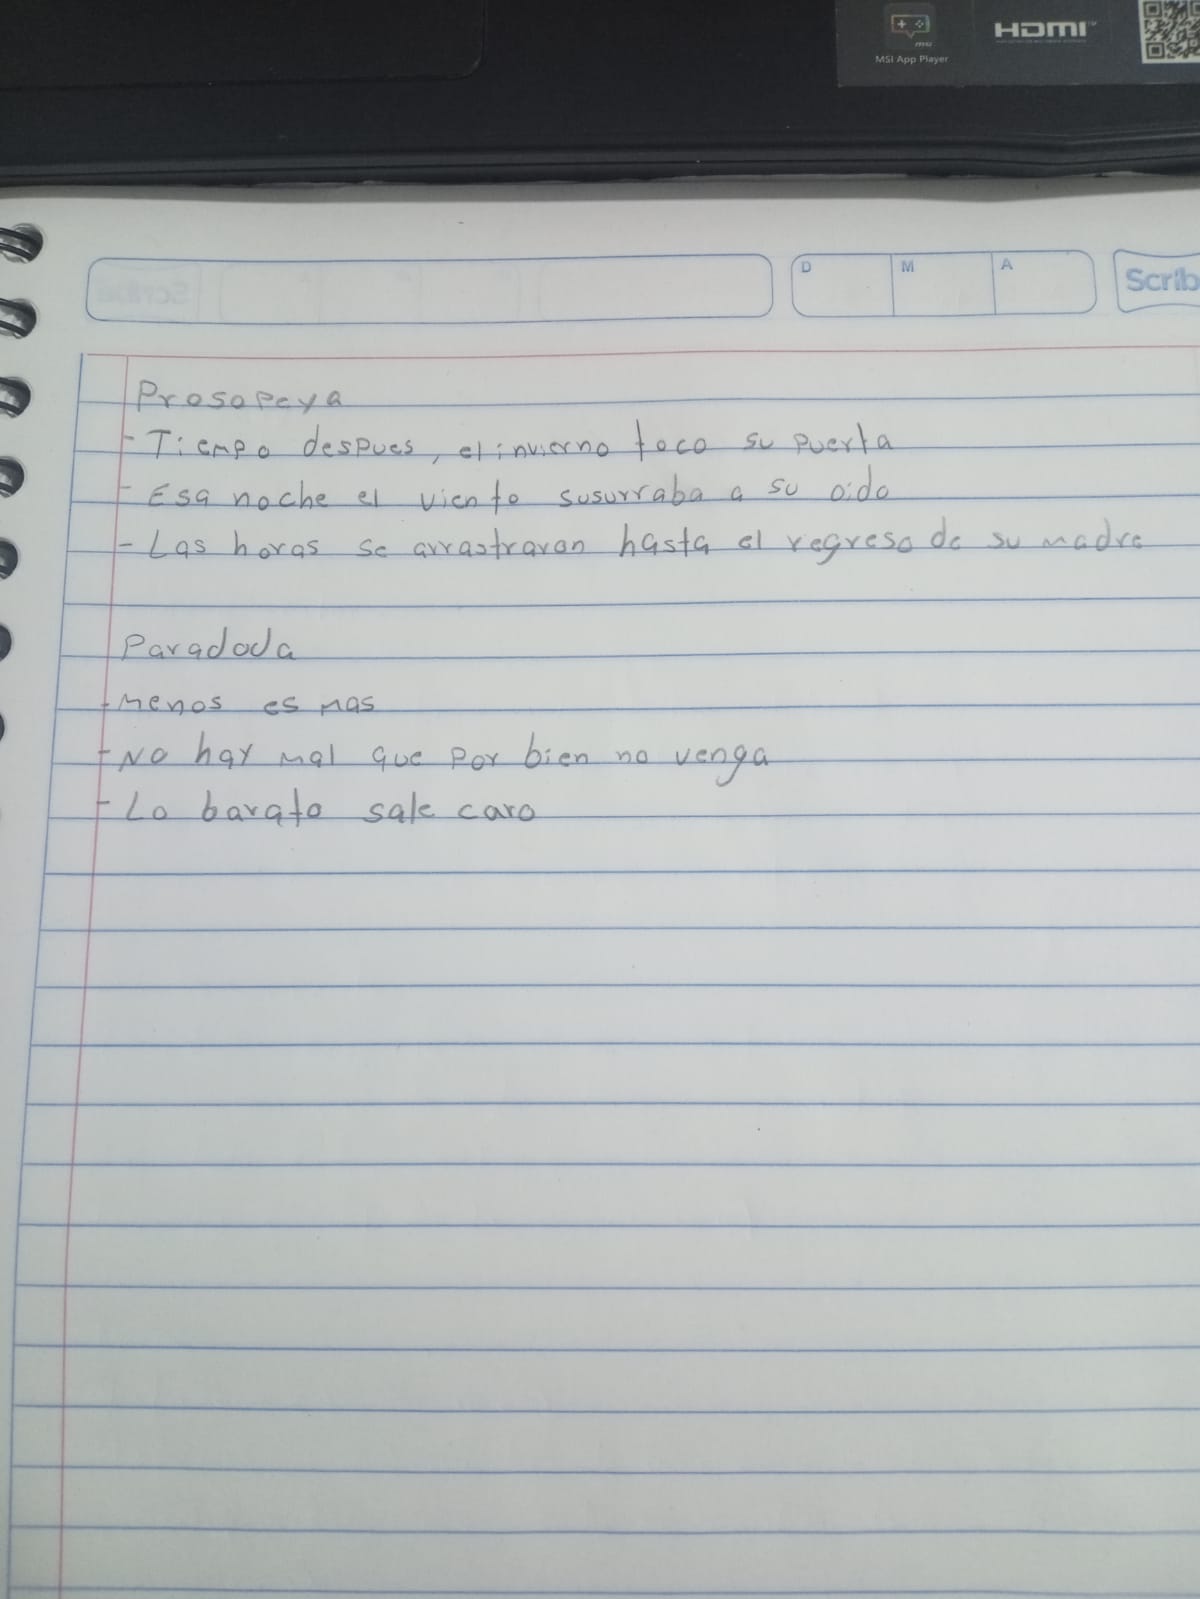 MSI App Player
HDMI
D M A
Scrib
Prosopeya
- Tiempo despues, el invierno toco su puerta
- Esa noche el viento susurraba a su oido
- Las horas se arrastraron hasta el regreso de su madre
Paradoda
- Menos es mas
- No hay mal que por bien no venga
- Lo barato sale caro